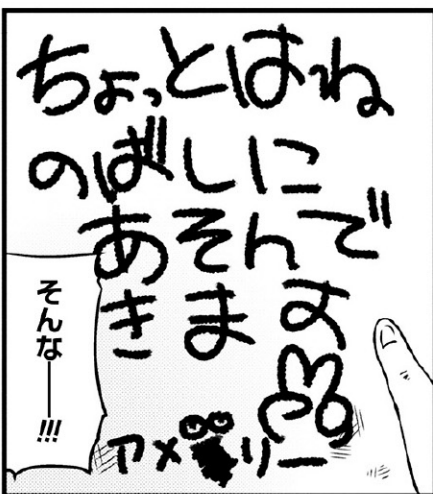 ちょっとはね
のばしに
あそんで
きます
アメリー
そんな――!!!